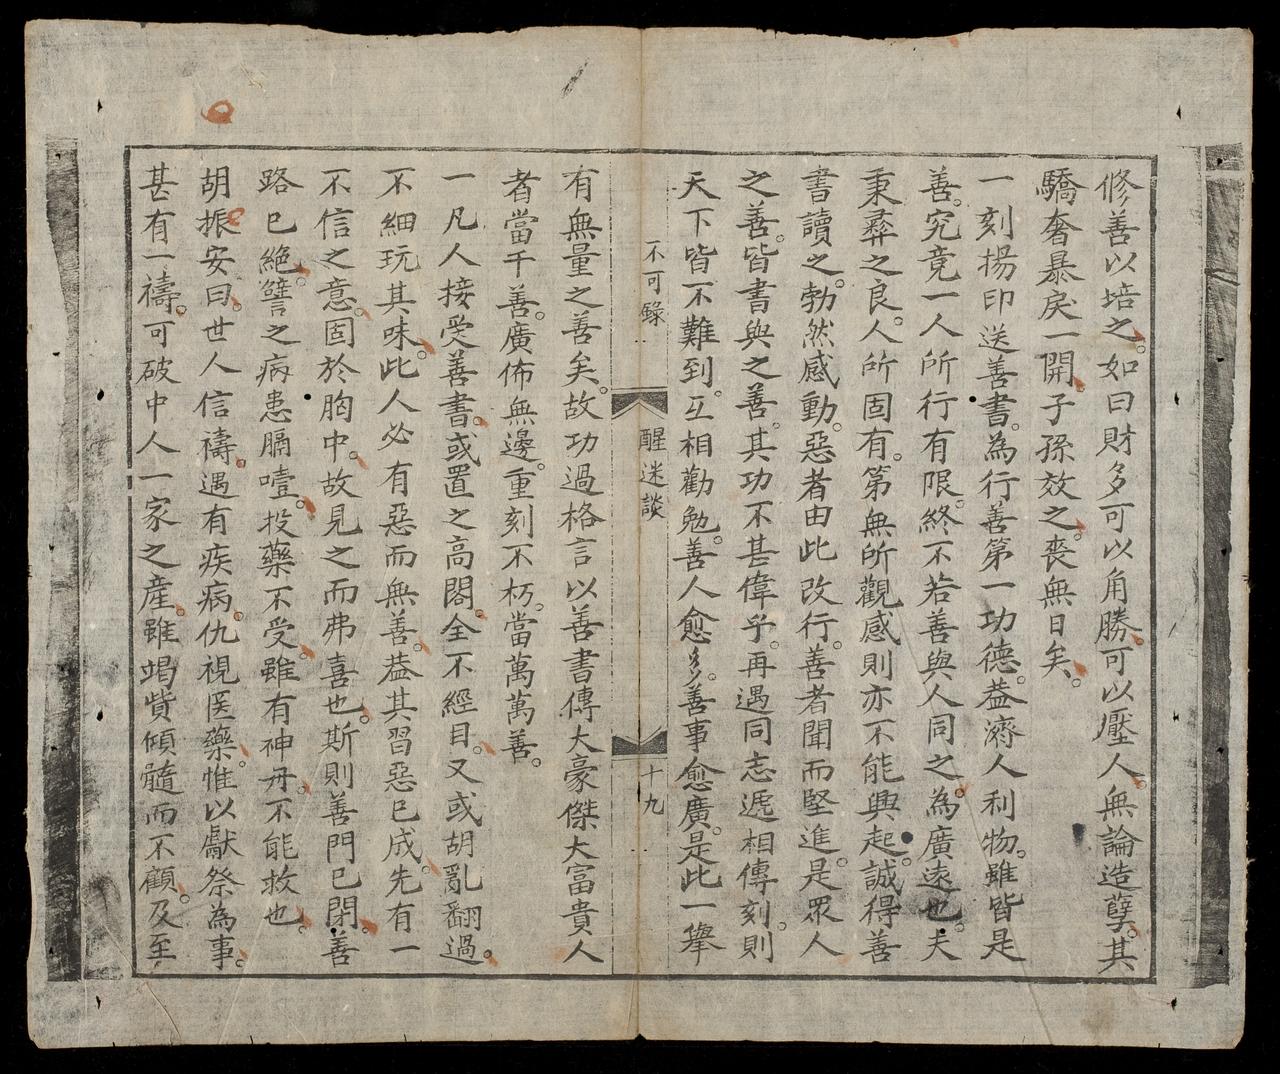 修善以培之。如曰財多可以角勝。可以壓人。無論造孽。其
驕奢暴戾一開。子孫效之。喪無日矣。
一刻揚印送善書。為行善第一功德。葢濟人利物。雖皆是
善。究竟一人所行有限。終不若善與人同之。為廣遠也。夫
秉彝之良。人所固有。第無所觀感則亦不能興起。誠得善
書讀之。勃然感動。惡者由此改行。善者聞而堅進。是眾人
之善。皆書與之善。其功不甚偉乎。再遇同志遞相傳刻。則
天下皆不難到。互相勸勉。善人愈多。善事愈廣。是此一舉
不可錄
醒迷談
十九
有無量之善矣。故功過格言以善書傳大豪傑大富貴人
者當千善。廣佈無邊。重刻不朽。當萬萬善。
一凡人接受善書。或置之高閣。全不經目。又或胡亂翻過。
不細玩其味。此人必有惡而無善。葢其習惡已成。先有一
不信之意。固於胸中。故見之而弗喜也。斯則善門已閉。善
路已絕。譬之病患膈噎。投藥不受。雖有神丹。不能救也。
胡振安曰。世人信禱。遇有疾病。仇視医藥。惟以獻祭為事。
甚有一禱。可破中人一家之產。雖竭貲傾髓而不顧。及至